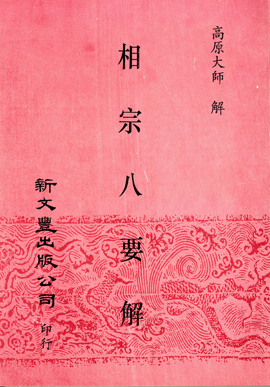 高原大師　解
相宗八要解
新文豐出版公司　印行